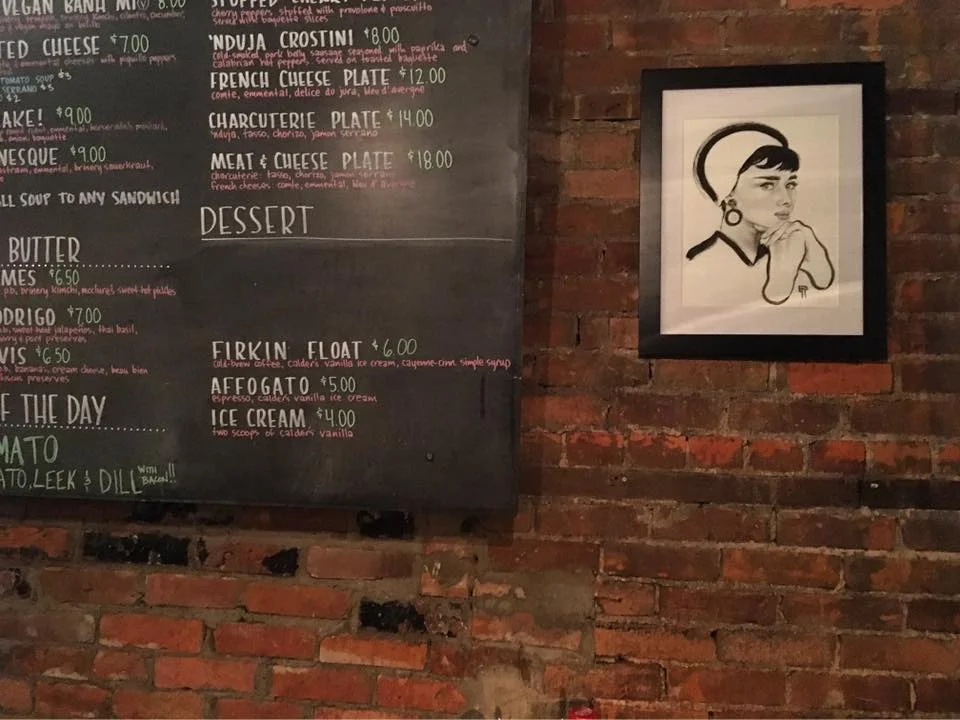 VEGAN BANH MI 8.00
TED CHEESE $7.00
TOMATO SOUP $3
SERRANO $3
$2
AKE! $9.00
NESQUE $9.00
ALL SOUP TO ANY SANDWICH
BUTTER
MES $6.50
p.b., brinery kimchi, mcclure's sweet hot pickles
ODRIGO $7.00
p.b., sweet heat jalapeños, thai basil,
cherry & port preserves
VIS $6.50
p.b., bananas, cream cheese, beau bien
hibiscus preserves
F THE DAY
MATO
ATO, LEEK & DILL WITH BACON!!
cherry peppers stuffed with provolone & prosciutto
served with baguette slices
'NDUJA CROSTINI $8.00
cold-smoked pork belly sausage seasoned with paprika and
calabrian hot pepper, served on toasted baguette
FRENCH CHEESE PLATE $12.00
comte, emmental, delice du jura, bleu d'auvergne
CHARCUTERIE PLATE $14.00
'nduja, tasso, chorizo, jamon serrano
MEAT & CHEESE PLATE $18.00
charcuterie: tasso, chorizo, jamon serrano
french cheeses: comte, emmental, bleu d'auvergne
DESSERT
FIRKIN FLOAT $6.00
cold-brew coffee, calder's vanilla ice cream, cayenne-cinn. simple syrup
AFFOGATO $5.00
espresso, calder's vanilla ice cream
ICE CREAM $4.00
two scoops of calder's vanilla